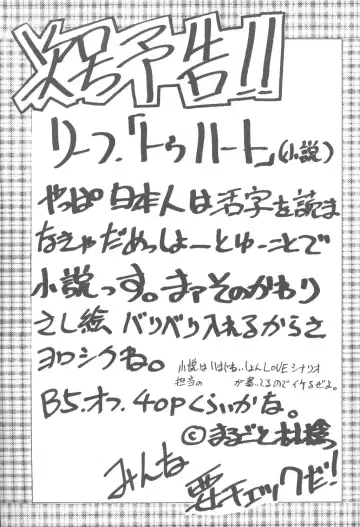 次号予告!!
リーフ.「トゥハート」(小説)
やっぱ日本人は活字を読ま
なきゃだめっしょーとゆーことで
小説っす。まァそのかわり
さし絵バリバリ入れるからさ
ヨロシクね。
小説は LOVEシナリオ
担当の が書いてるのでイケるぜよ。
B5.オフ.40Pくらいかな。
©まるごと林檎
みんな
要チェックだ!